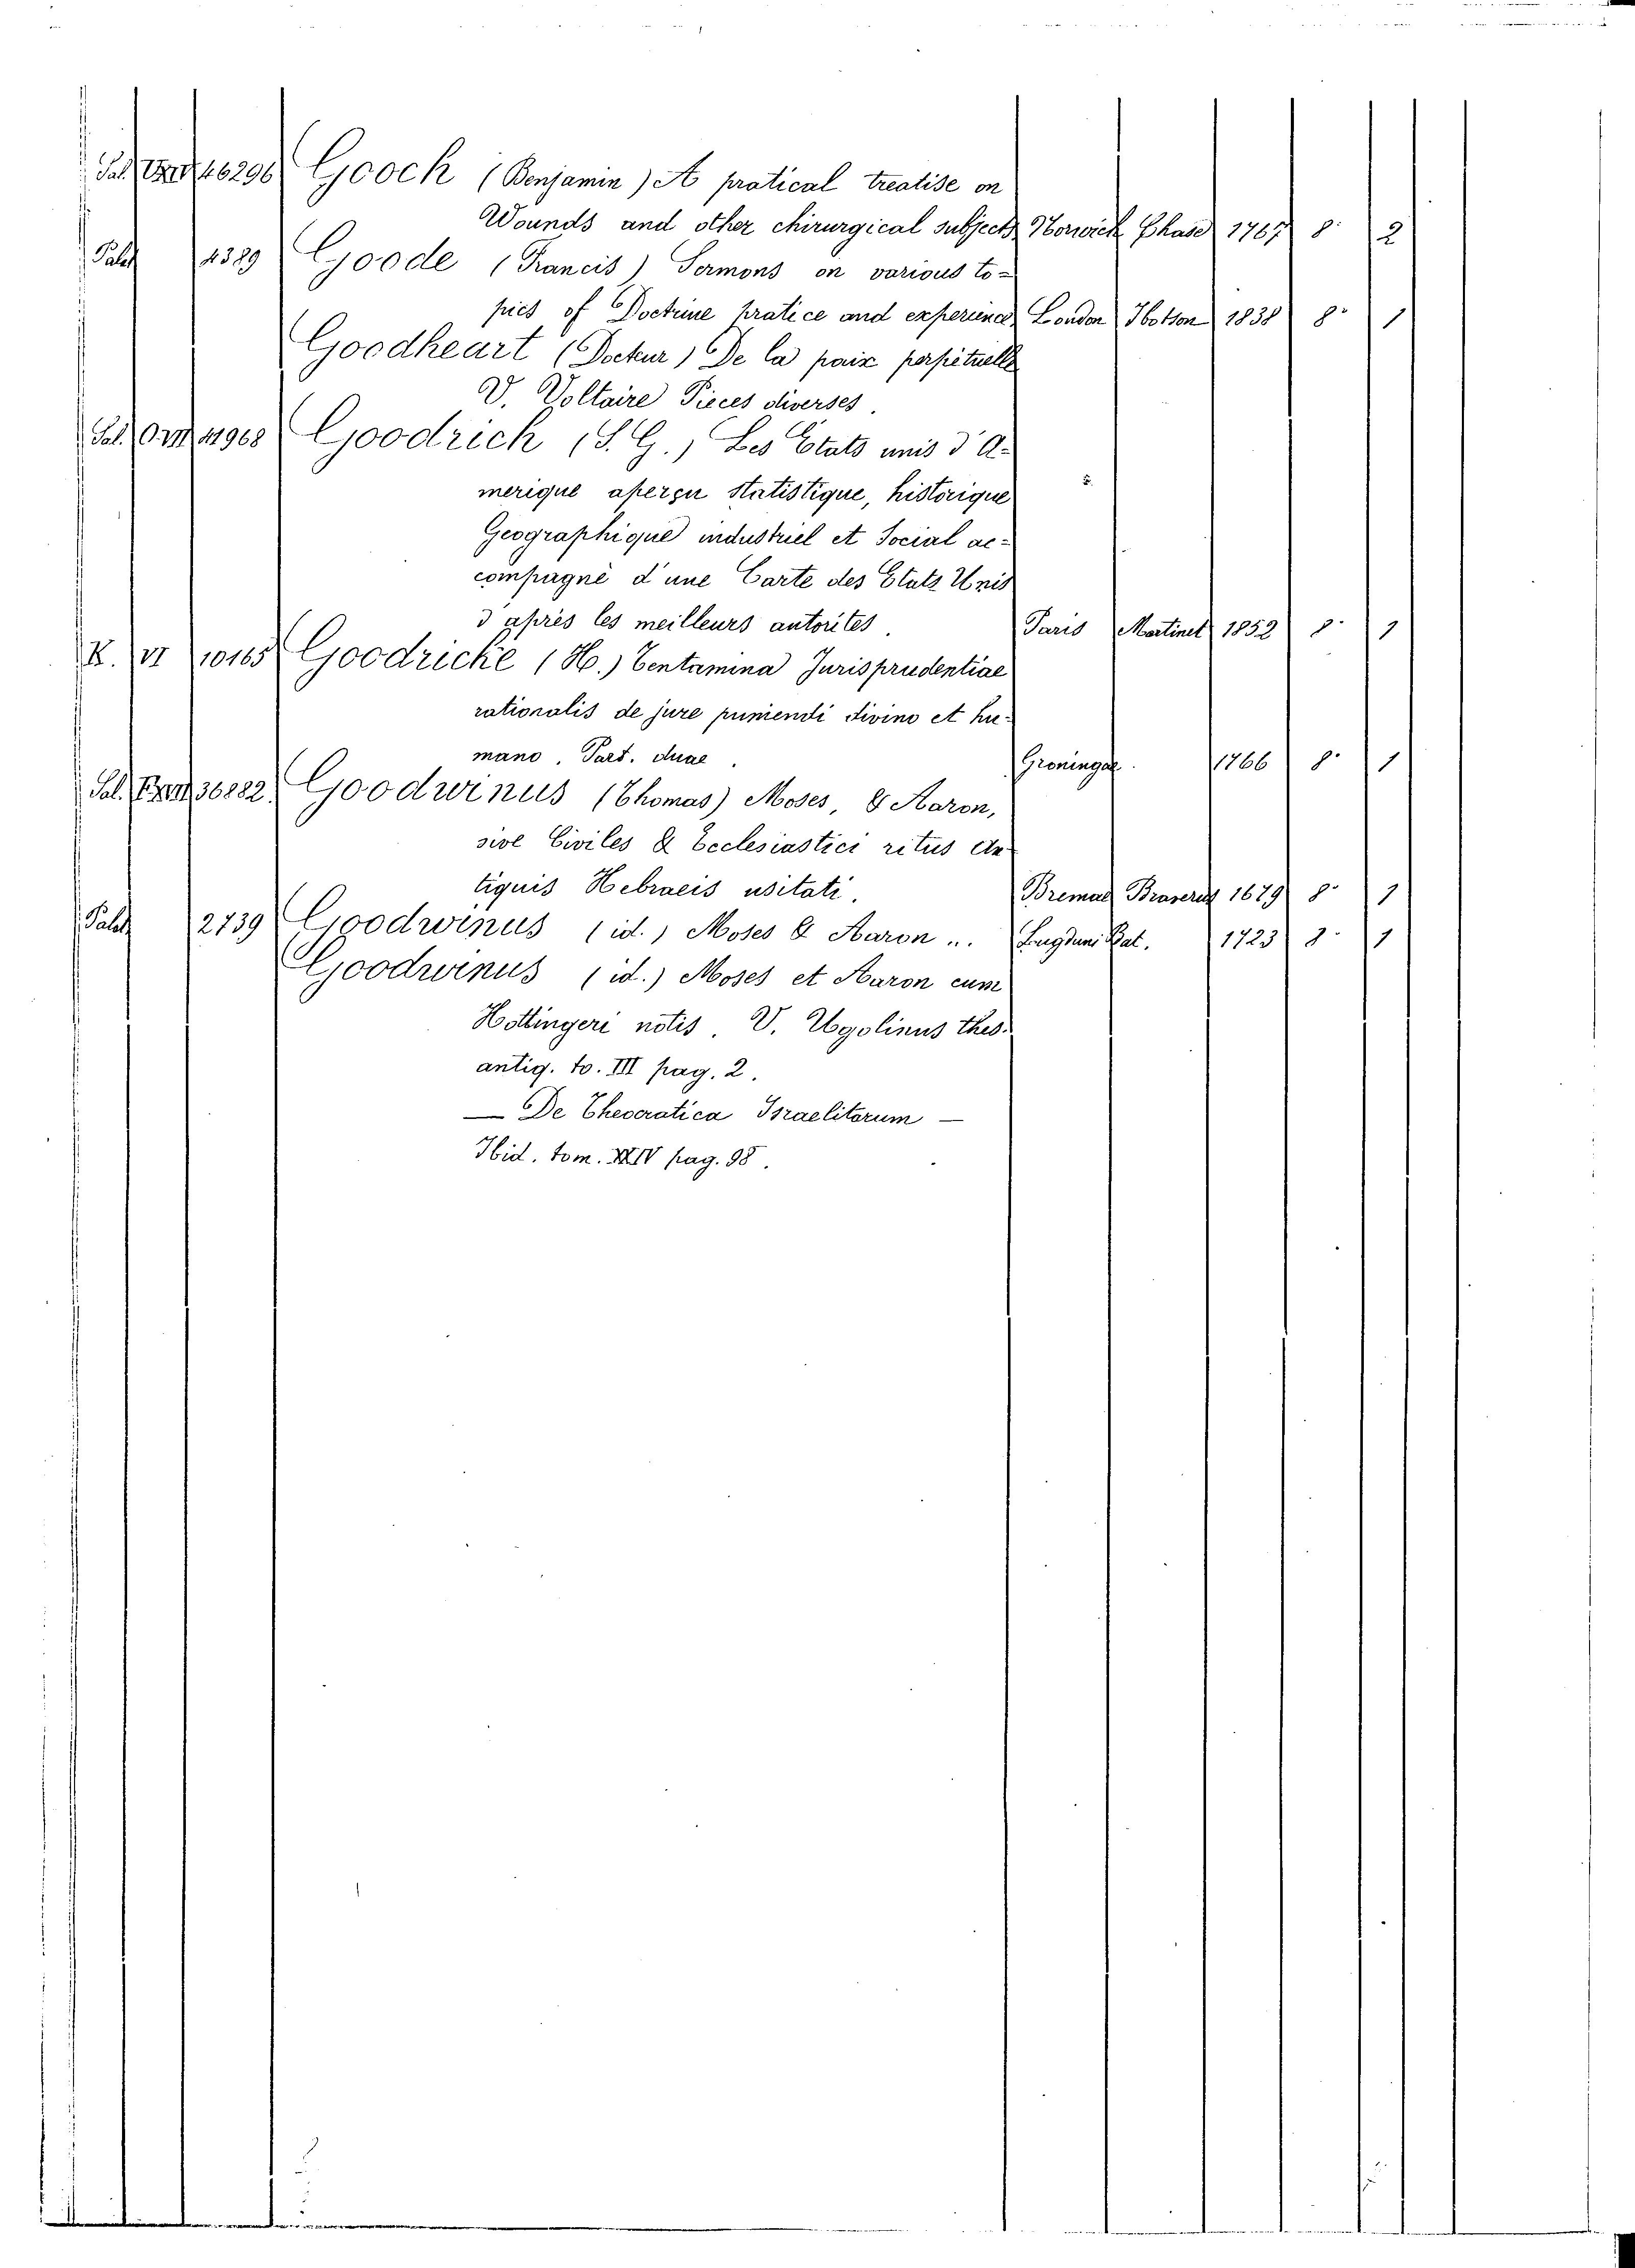 Sal. 46296 Goock (Benjamin) A pratical treatise on
Wounds and other chirurgical subjects Norwich Chase 1767 8° 2
Palch 4389 Goode (Francis) Sermons on various to=
pics of Doctrine pratice and experience London Ibotson 1838 8° 1
Goodheart (Docteur) De la paix perpétuelle
V. Voltaire Pieces diverses.
Sal. 41968 Goodrich (S. G.) Les Etats unis d'A-
merique aperçu statistique, historique
Geographique industriel et Social ac=
compagné d'une Carte des Etats Unis
d'après les meilleurs autorites. Paris Martinet 1852 8° 1
K. VI 10165 Goodricke (H.) Tentamina Jurisprudentiae
rationalis de jure puniendi divino et hu-
mano. Part. duae. Groningae. 1766 8° 1
Sal. 36882 Goodwinus (Thomas) Moses, & Aaron,
sive Civiles & Ecclesiastici ritus An
tiquis Hebraeis usitati. Bremae 1679 8° 1
Palch 2739 Goodwinus (id.) Moses & Aaron ... Lugduni Bat. 1723 8° 1
Goodwinus (id.) Moses et Aaron cum
Hottingeri notis. V. Ugolinus thes.
antiq. to. III pag. 2.
— De Theocratica Israelitarum —
Ibid. tom. XXIV pag. 98.